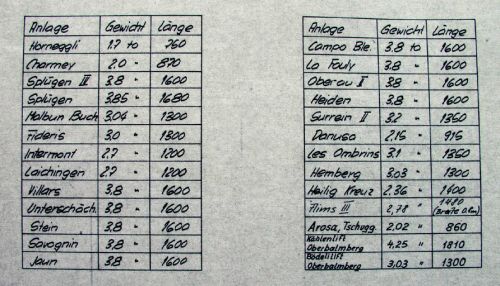 Anlage Gewicht Länge
Horneggli 1.7 to 760
Charmey 2.0 " 870
Splügen III 3.8 " 1600
Splügen 3.85 " 1680
Malbun Buch 3.04 " 1300
Fideris 3.0 " 1300
Intermont 2.7 " 1200
Laichingen 2.7 " 1200
Villars 3.8 " 1600
Unterschäch. 3.8 " 1600
Stein 3.8 " 1600
Savognin 3.8 " 1600
Jaun 3.8 " 1600
Anlage Gewicht Länge
Campo Ble. 3.8 to 1600
La Fouly 3.8 " 1600
Oberau II 3.8 " 1600
Heiden 3.8 " 1600
Surrein II 3.2 " 1350
Danusa 2,15 " 915
Les Ombrins 3.1 " 1350
Hemberg 3,03 " 1300
Heilig Kreuz 2,36 "
Flims III 2,78 " 1480
Arosa, Tschugg. 2,02 " 860
Kählenlift
Oberbalmberg 4,25 " 1810
Bödelilift
Oberbalmberg 3,03 " 1300